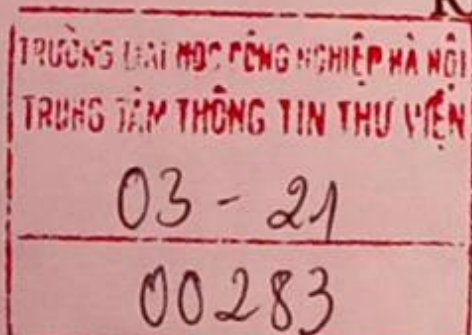 TRƯỜNG ĐẠI HỌC CÔNG NGHIỆP HÀ NỘI
TRUNG TÂM THÔNG TIN THƯ VIỆN
03 - 21
00283